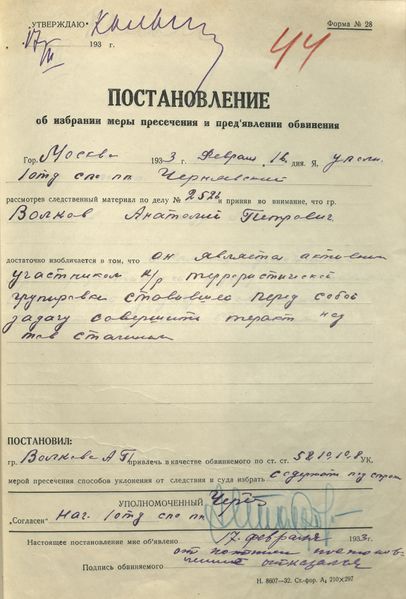 „УТВЕРЖДАЮ"
Форма № 28
17/II 193 г.
44
ПОСТАНОВЛЕНИЕ
об избрании меры пресечения и пред'явлении обвинения
Гор. Москва 1933 Февраля 16 дня. Я, уполн.
1 отд спо пп Чернявский
рассмотрев следственный материал по делу № 2526 и приняв во внимание, что гр.
Волков Анатолий Петрович
достаточно изобличается в том, что он является активным
участником к/р террористической
группировки ставившей перед собой
задачу совершить теракт над
тов сталиным
ПОСТАНОВИЛ:
гр. Волкова А П привлечь в качестве обвиняемого по ст. ст. 58 19, 8 УК.
мерой пресечения способов уклонения от следствия и суда избрать содержат под страж
УПОЛНОМОЧЕННЫЙ
„Согласен" Нач. 1 отд спо пп
Настоящее постановление мне об'явлено 17 февраля 1933 г.
Подпись обвиняемого от подписи постанов-
отказался
Н. 8607—32. Ст.-фор. А₄ 210×297